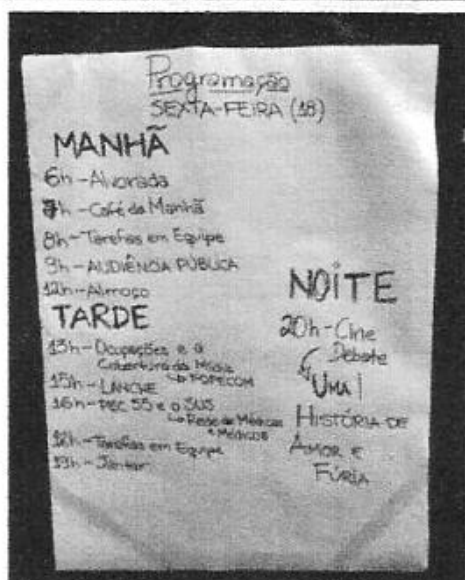 Programação
SEXTA-FEIRA (18)
MANHÃ
6h - Alvorada
7h - Café da Manhã
8h - Tarefas em Equipe
9h - AUDIÊNCIA PÚBLICA
12h - Almoço
TARDE
13h - Ocupações e a
Cobertura da Mídia
↳ FOPECOM
15h - LANCHE
16h - PEC 55 e o SUS
↳ Rede de Médicas
e Médicos
Tarefas em Equipe
Jantar
NOITE
20h - Cine
Debate
↳ UMA
HISTÓRIA DE
AMOR E
FÚRIA